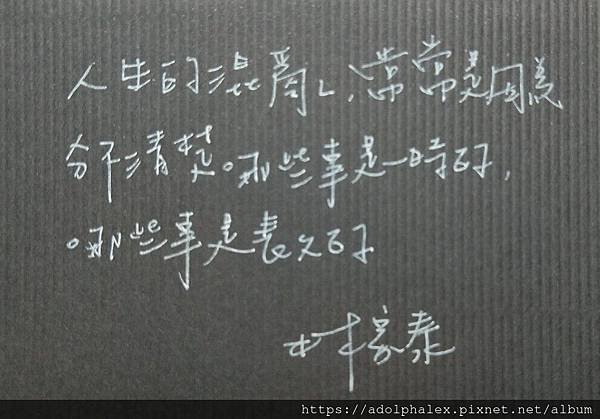 人生的混亂,常常是因為
分不清楚哪些事是一時的,
哪些事是長久的
林家泰
https://adolphalex.pixnet.net/album